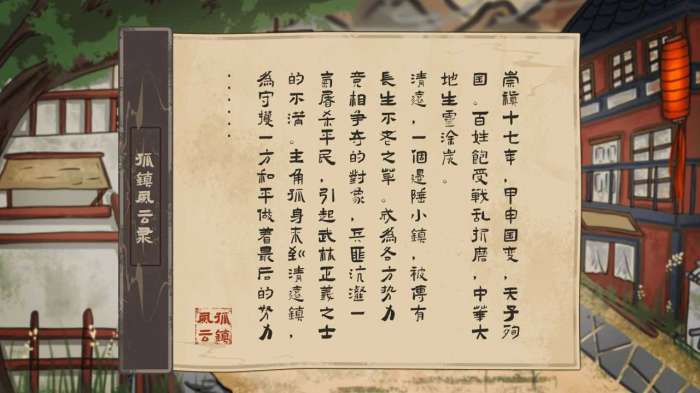 崇禎十七年，甲申国变，天子殉
国。百姓飽受戰乱折磨，中華大
地生靈涂炭。
清遠，一個邊陲小鎮，被傳有
長生不老之草。成為各方势力
竞相争夺的對象，兵匪沆瀣一
氣屠杀平民，引起武林正義之士
的不满。主角孤身来到清遠鎮，
為守護一方和平做着最后的努力
······
孤鎮風云录
孤鎮風云